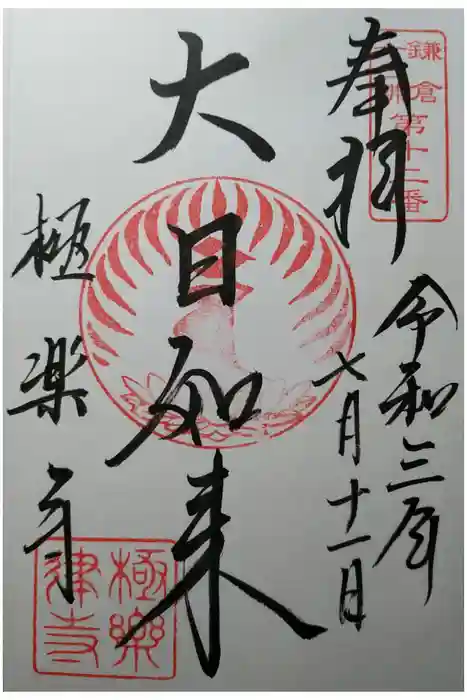 鎌倉
第十二番
奉拝
令和三年
七月十一日
大日如来
極楽寺
極樂
律寺